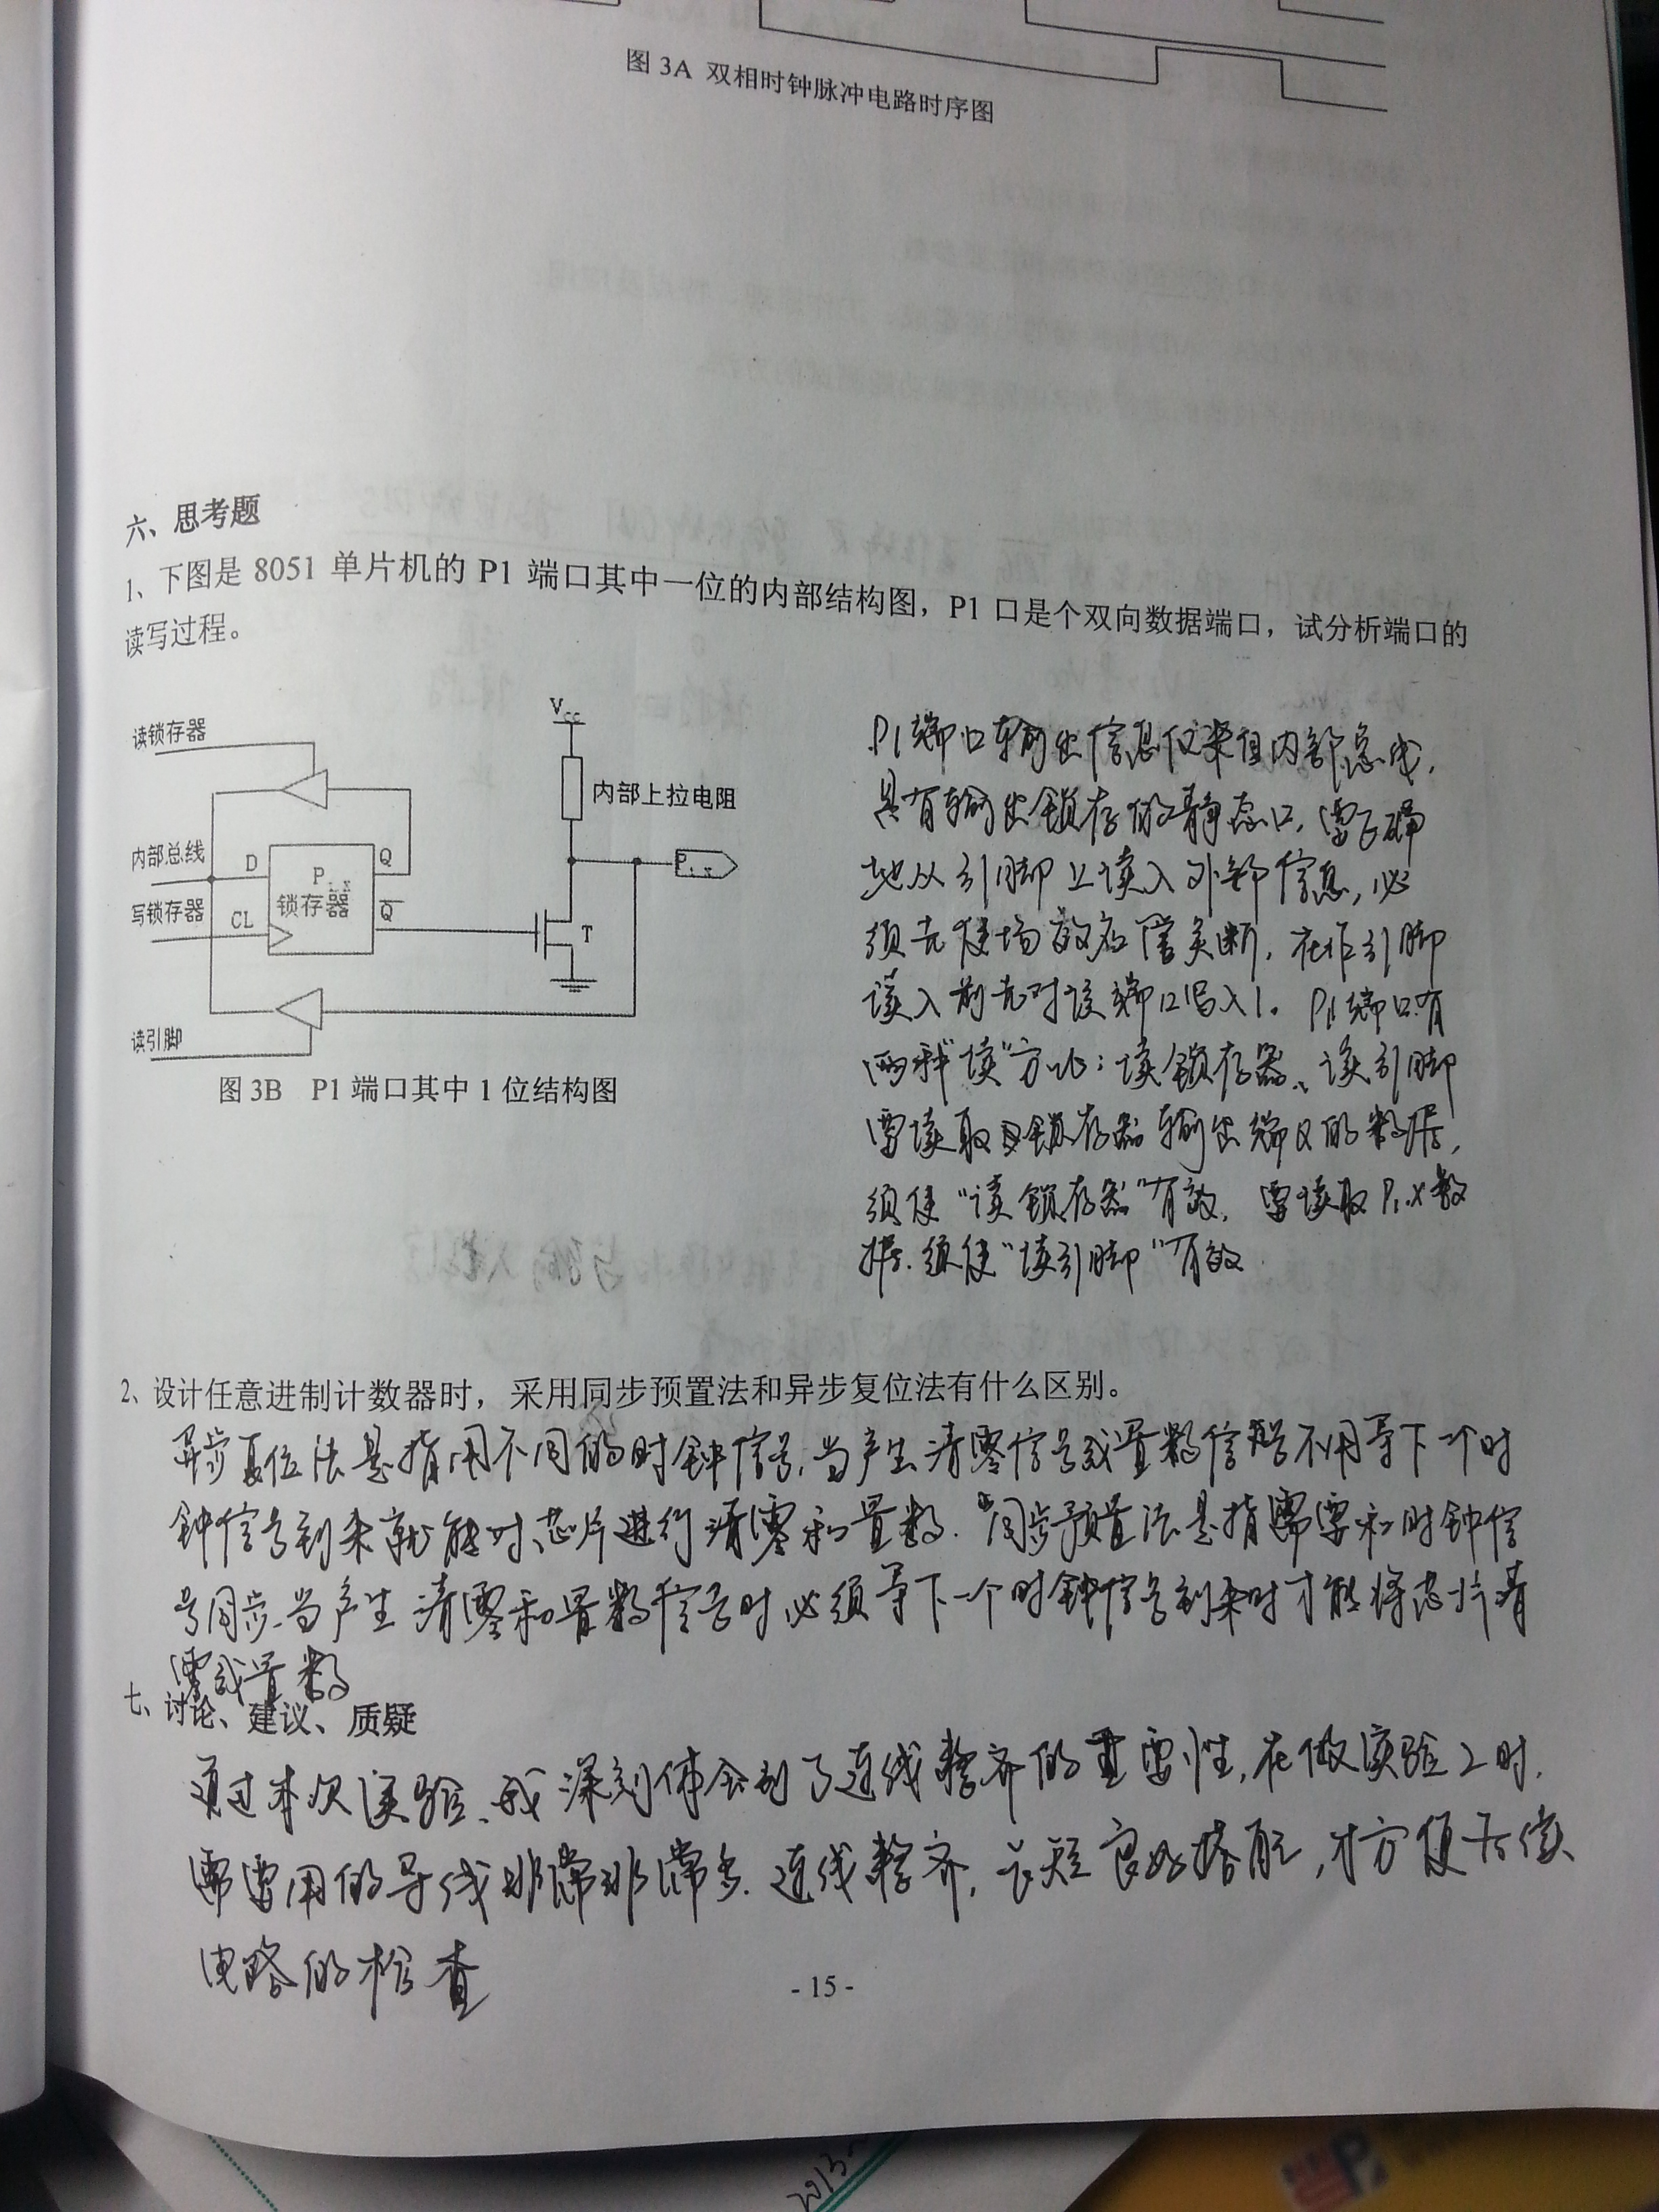 图 3A 双相时钟脉冲电路时序图
六、思考题
1、下图是 8051 单片机的 P1 端口其中一位的内部结构图，P1 口是个双向数据端口，试分析端口的
读写过程。
读锁存器
内部总线
写锁存器
读引脚
D
CL
P1.x
锁存器
Q
Q̅
Vcc
内部上拉电阻
T
P1.x
图 3B P1 端口其中 1 位结构图
P1端口输出信息仅来自内部总线，
具有输出锁存的静态口，要正确
地从引脚上读入外部信息，必
须先使场效应管关断，在作引脚
读入前先对该端口写入1。P1端口有
两种“读”方式：读锁存器、读引脚
要读取锁存器输出端Q的数据，
须使“读锁存器”有效，要读取P1.x数
据，须使“读引脚”有效.
2、设计任意进制计数器时，采用同步预置法和异步复位法有什么区别。
异步复位法是指用不同的时钟信号，当产生清零信号或置数信号不用等下一个时
钟信号到来就能对芯片进行清零和置数. 同步预置法是指需要和时钟信
号同步，当产生清零和置数信号时必须等下一个时钟信号到来时才能将芯片清
零或置数
七、讨论、建议、质疑
通过本次实验、我深刻体会到了连线整齐的重要性，在做实验2时，
需要用的导线非常非常多，连线整齐，长短良好搭配，才方便后续
电路的检查
- 15 -
2013